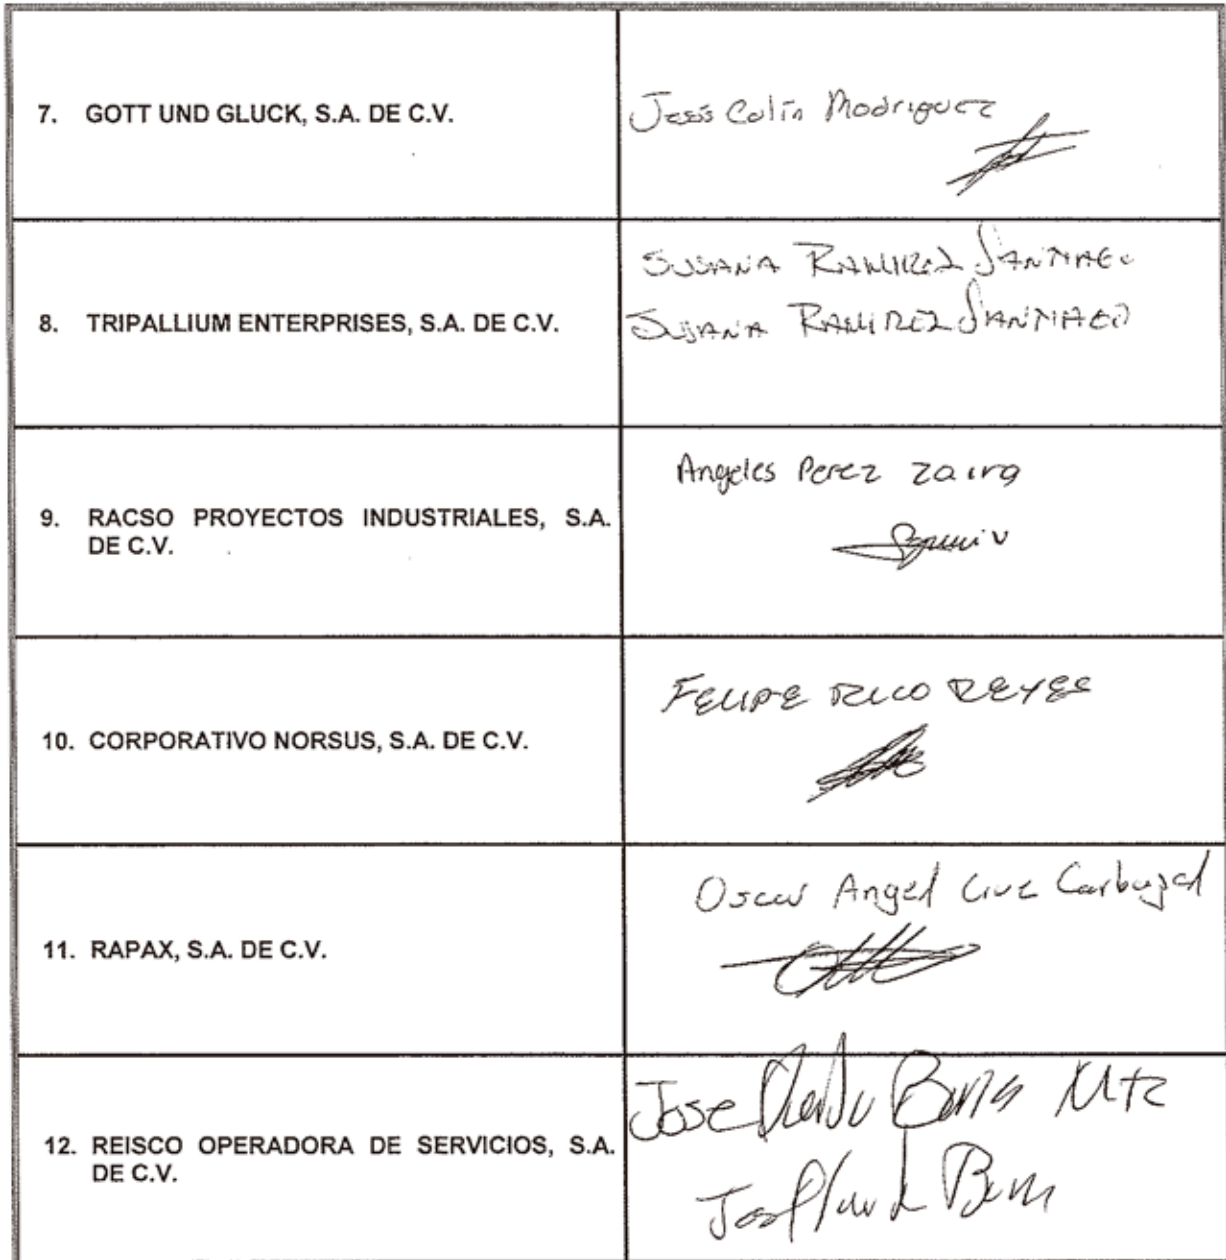 7. GOTT UND GLUCK, S.A. DE C.V.
Jesús Colín Modriguez
8. TRIPALLIUM ENTERPRISES, S.A. DE C.V.
SUSANA RAMIREZ SANTIAGO
SUSANA RAMIREZ SANTIAGO
9. RACSO PROYECTOS INDUSTRIALES, S.A.
DE C.V.
Angeles Perez Zaira
10. CORPORATIVO NORSUS, S.A. DE C.V.
FELIPE RICO REYES
11. RAPAX, S.A. DE C.V.
Oscar Angel Cruz Carbajal
12. REISCO OPERADORA DE SERVICIOS, S.A.
DE C.V.
Jose Mtz